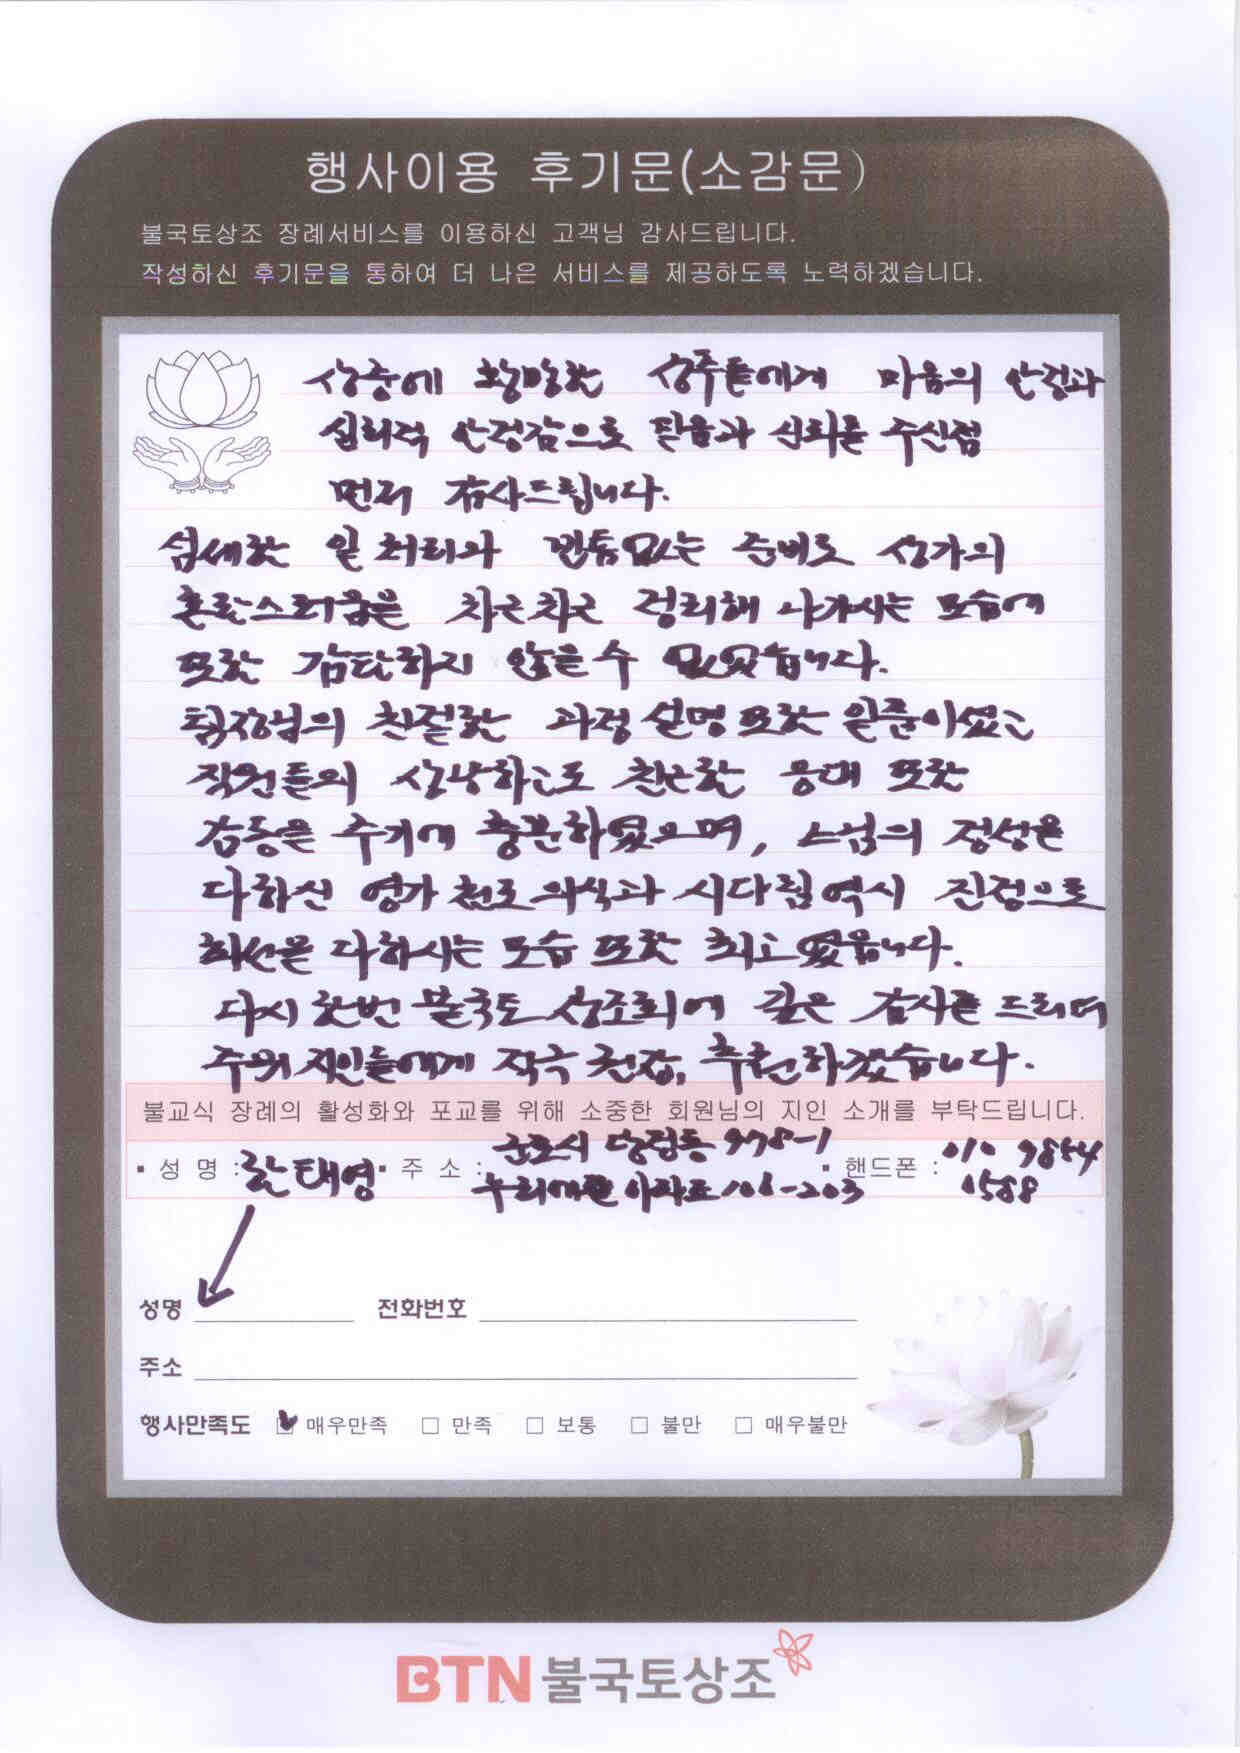 행사이용 후기문(소감문)
불국토상조 장례서비스를 이용하신 고객님 감사드립니다.
작성하신 후기문을 통하여 더 나은 서비스를 제공하도록 노력하겠습니다.
상중에 황망한 상주들에게 마음의 안정과
심리적 안정감으로 믿음과 신뢰를 주신점
먼저 감사드립니다.
섬세한 일 처리와 빈틈없는 준비로 상가의
혼란스러움을 차근차근 정리해 나가시는 모습에
또한 감탄하지 않을수 없었습니다.
팀장님의 친절한 과정 설명 또한 일품이셨고
직원들의 상냥하고도 친근한 응대 또한
감동을 주기에 충분하였으며, 스님의 정성을
다하신 영가 천도 의식과 시다림 역시 진정으로
최선을 다하시는 모습 또한 최고였읍니다.
다시 한번 불국토 상조회에 깊은 감사를 드리며
주위 지인들에게 적극 권장, 추천하겠습니다.
불교식 장례의 활성화와 포교를 위해 소중한 회원님의 지인 소개를 부탁드립니다.
▪ 성 명 : 한태영 ▪ 주 소 : 군포시 당정동 978-1 ▪ 핸드폰 : 010 9854
누리에뜰 아파트 106-203 1588
성명 전화번호
주소
행사만족도 ☑ 매우만족 □ 만족 □ 보통 □ 불만 □ 매우불만
BTN 불국토상조